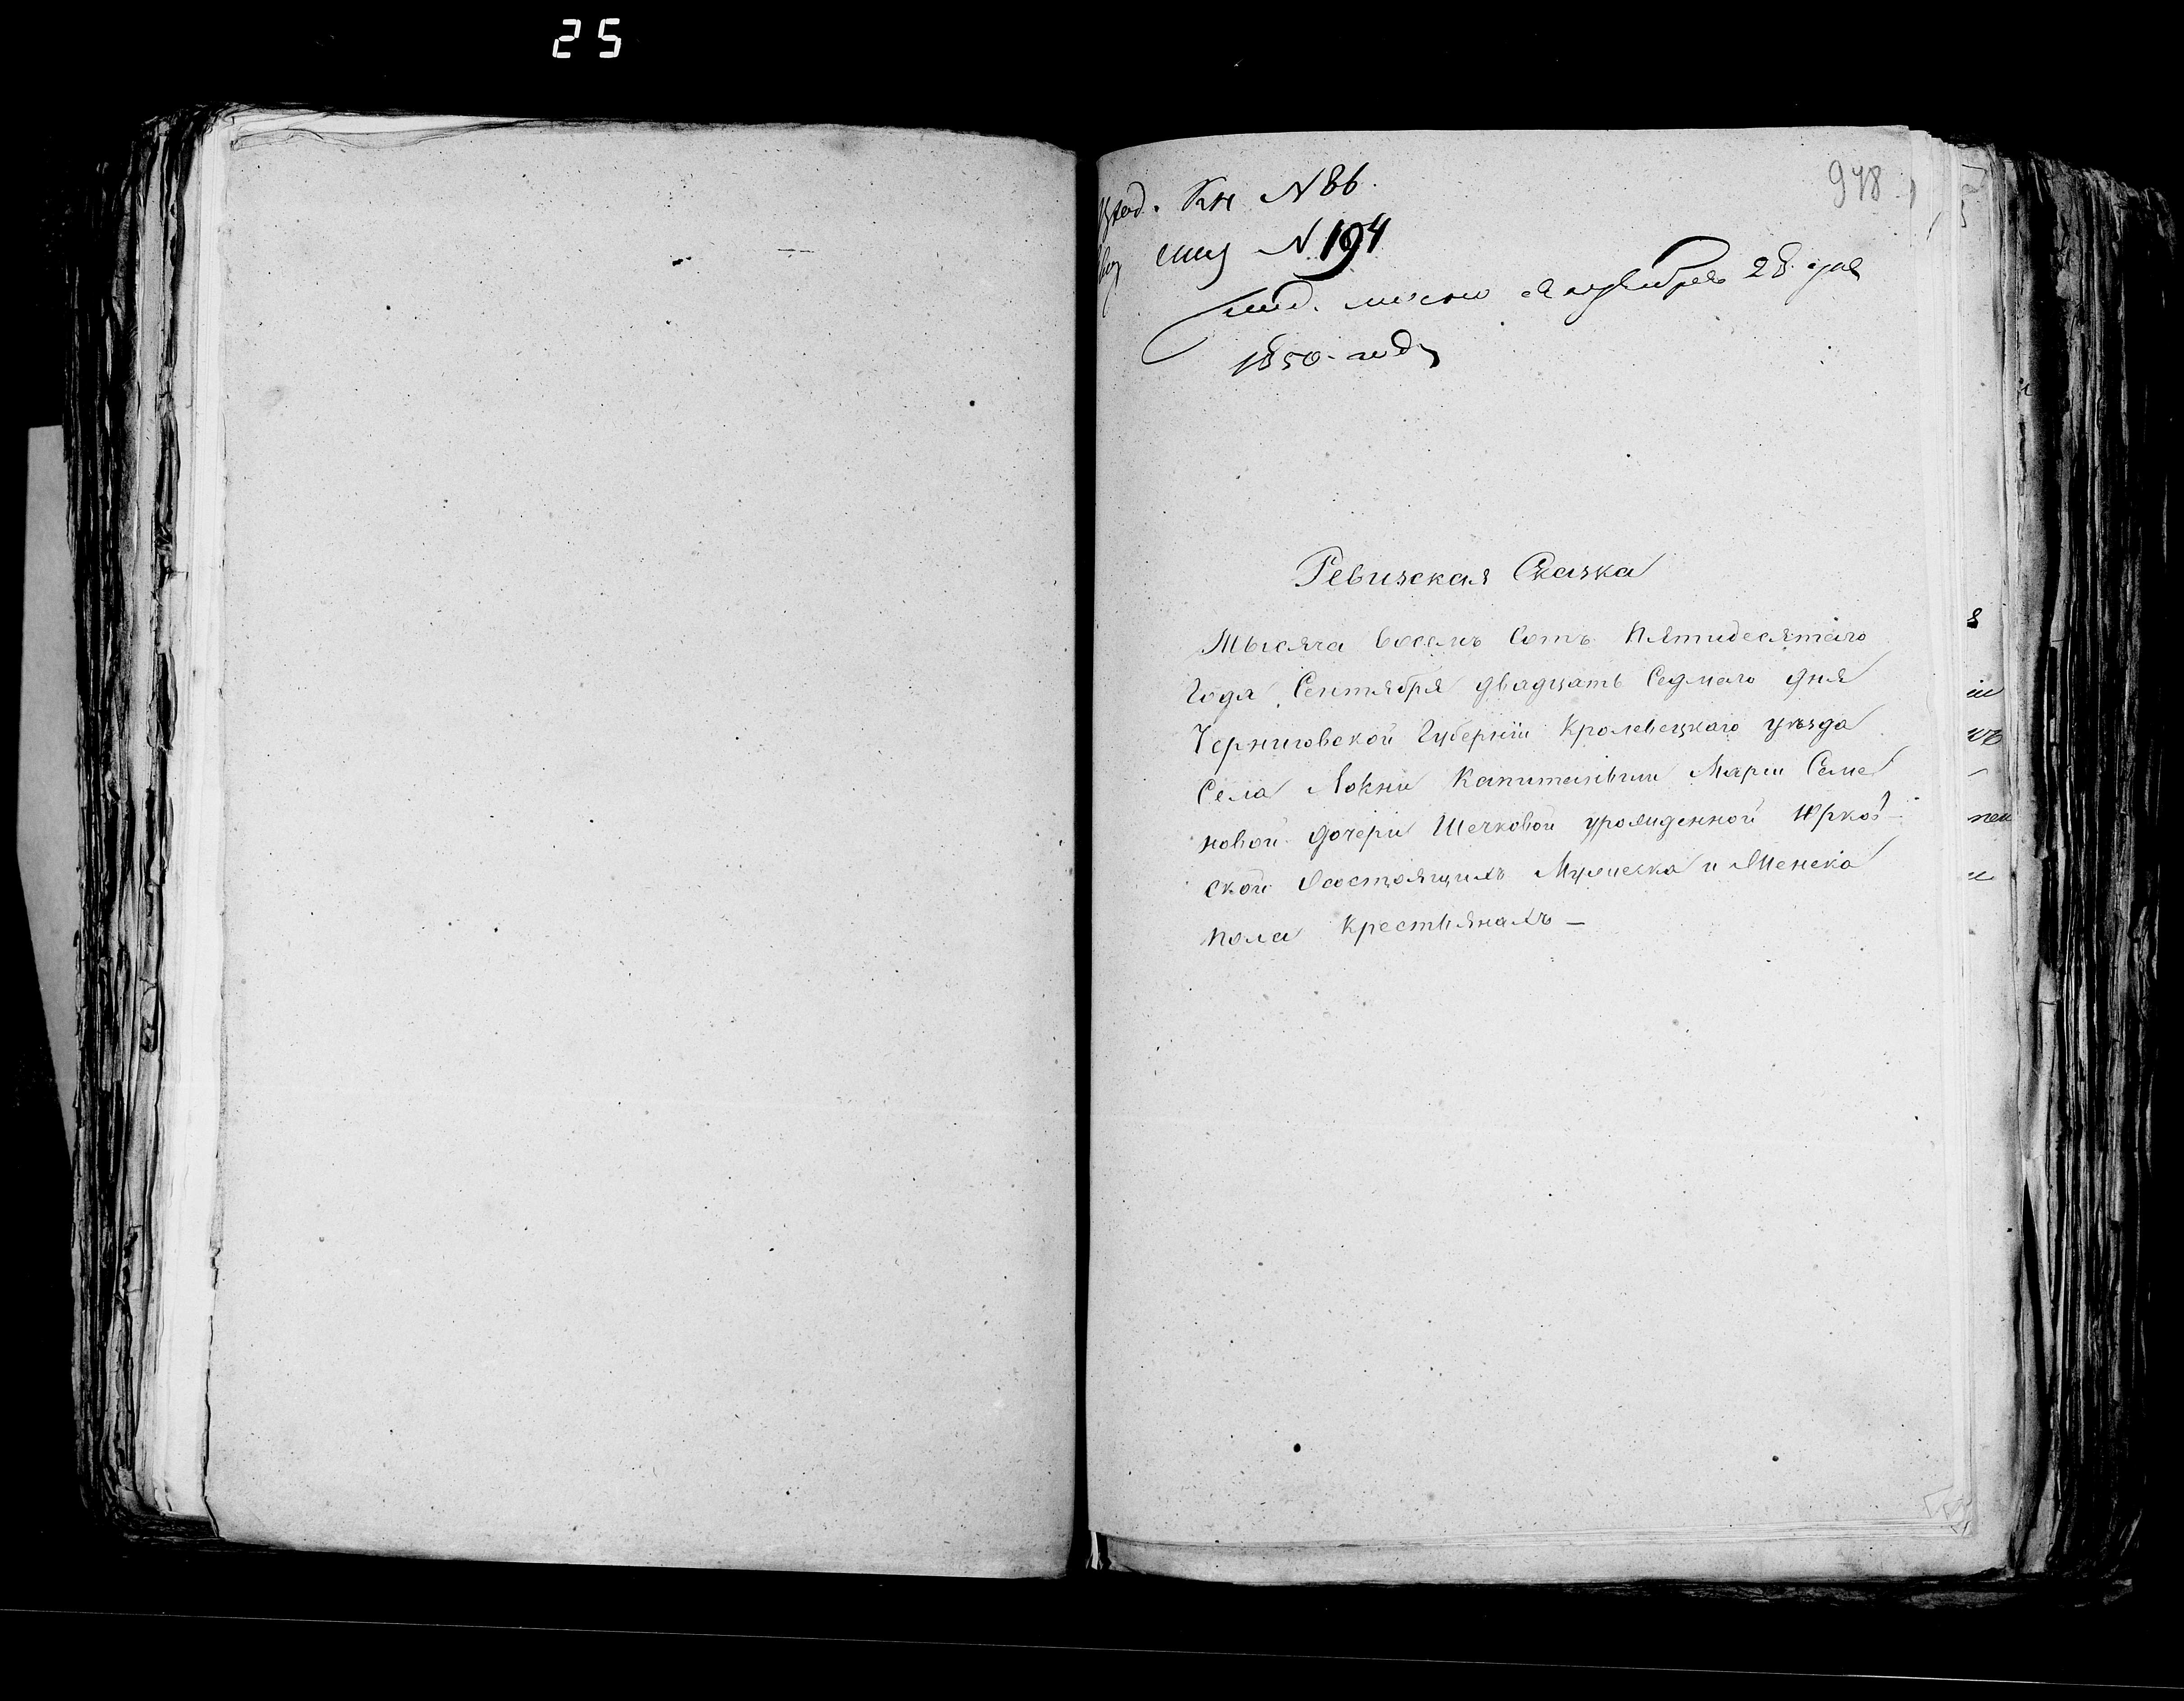 25
Кн N 86.
978
N 194
28. дня
1850. года
Ревизская Сказка
Тысяча восемь сотъ Пятидесятаго
Года Сентября двадцать Седмаго дня
Черниговской Губерніи Кролевецкаго уѣзда
Села Локни Капитанши Маріи Семе
новой дочери Шечковой урожденной Юрков-
ской О состоящихъ Мужеска и Женска
пола Крестьянахъ —